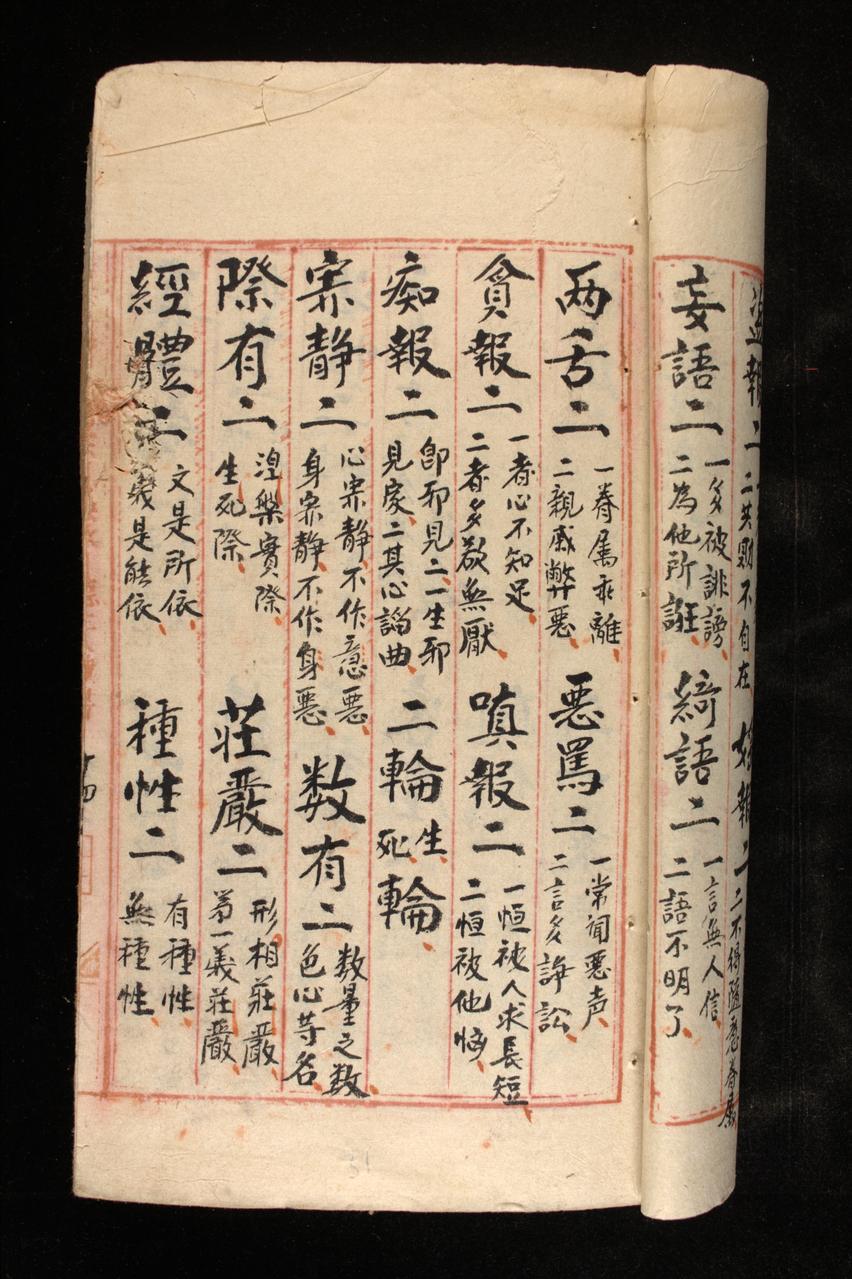 盗報二 二其财不自在 婬報二 二不得随意眷属
妄語二 一多被誹謗 二為他所誑 綺語二 一言無人信 二語不明了
两舌二 一眷属乖離 二親戚弊惡 惡罵二 一常闻惡声 二言多諍訟
貪報二 一者心不知足 二者多欲無厭 嗔報二 一恒被人求長短 二恒被他惱
痴報二 即邪見二一生邪見家二其心謟曲 二輪 生死輪
寂静二 心寂静不作意惡 身寂静不作身惡 数有二 数量之数 色心等名
際有二 涅槃實際 生死際 莊嚴二 形相莊嚴 第一義莊嚴
經體二 文是所依 義是能依 種性二 有種性 無種性